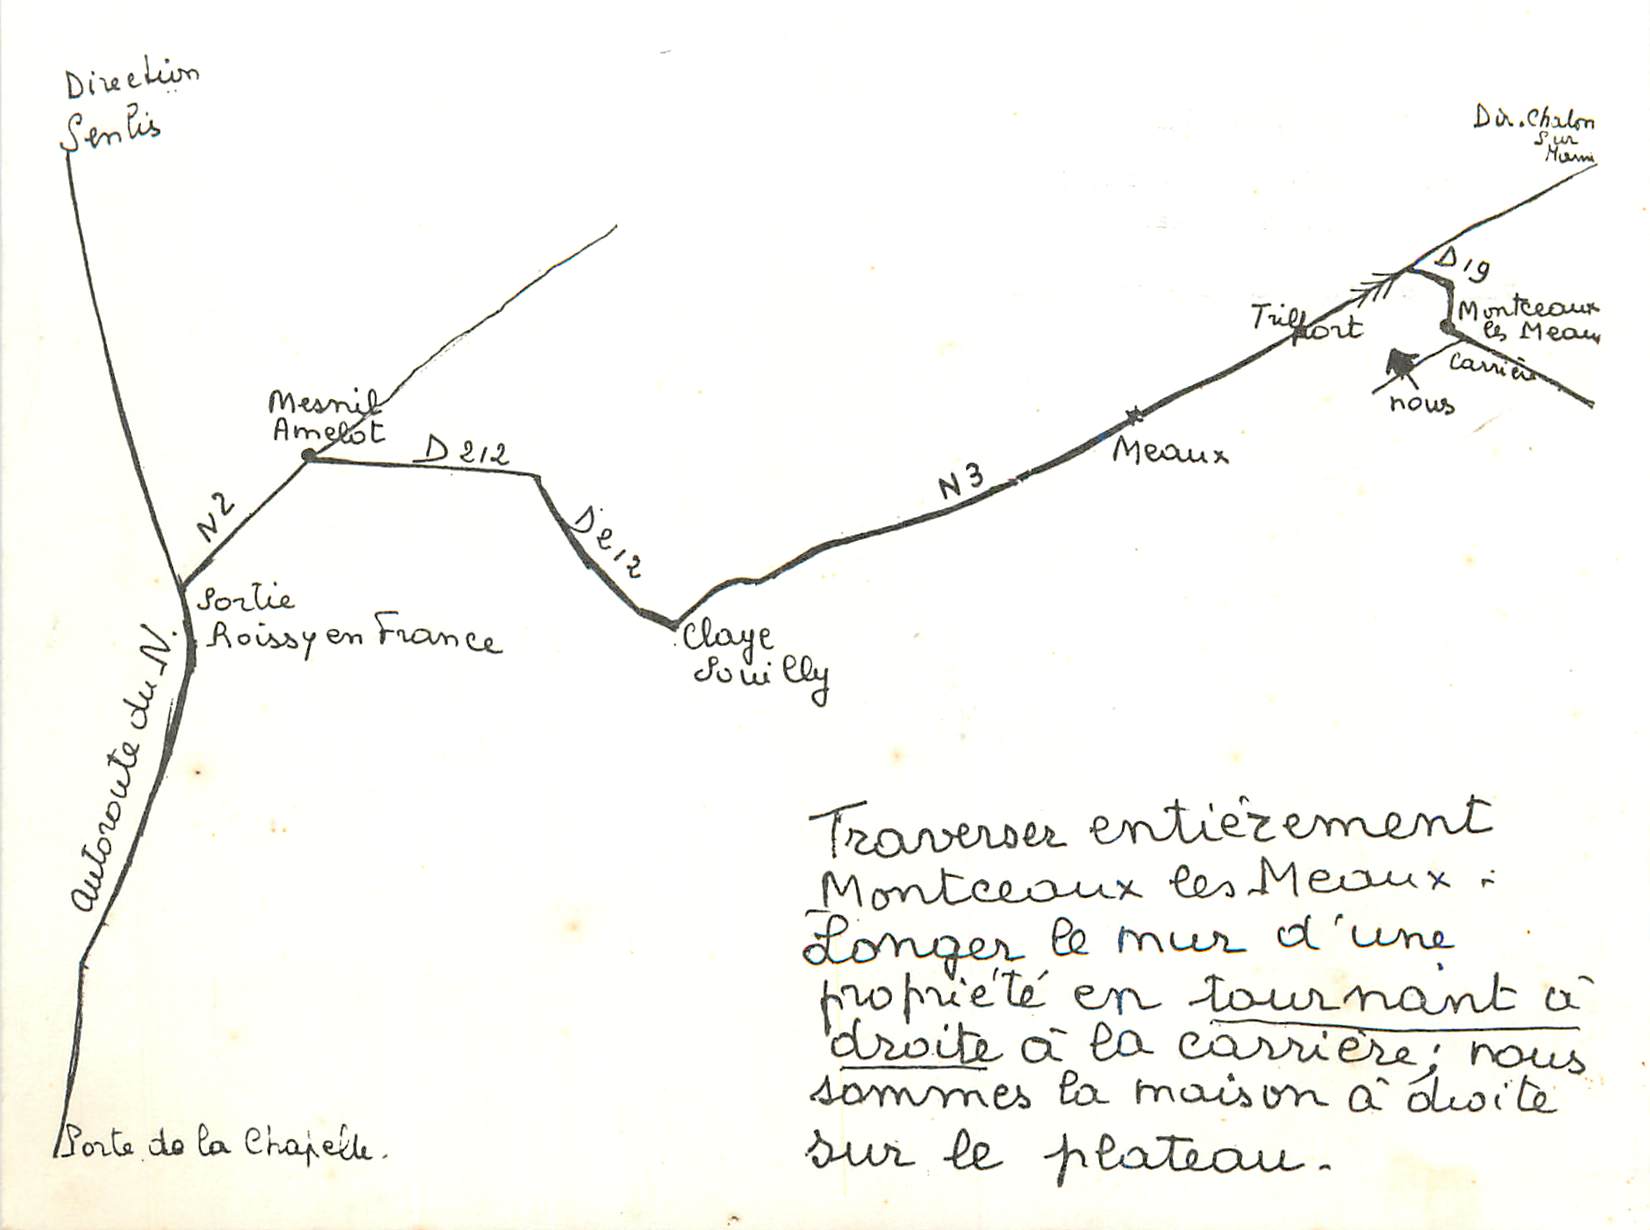 Direction
Senlis
Dir. Chalon
sur
D19
Montceaux
les Meaux
Trilport
Carrière
nous
Mesnil
Amelot
D 212
Meaux
N 3
N 2
D 212
Sortie
Roissy en France
Claye
Souilly
Autoroute du N.
Porte de la Chapelle.
Traverser entièrement
Montceaux les Meaux.
Longer le mur d'une
propriété en tournant à
droite à la carrière; nous
sommes la maison à droite
sur le plateau.